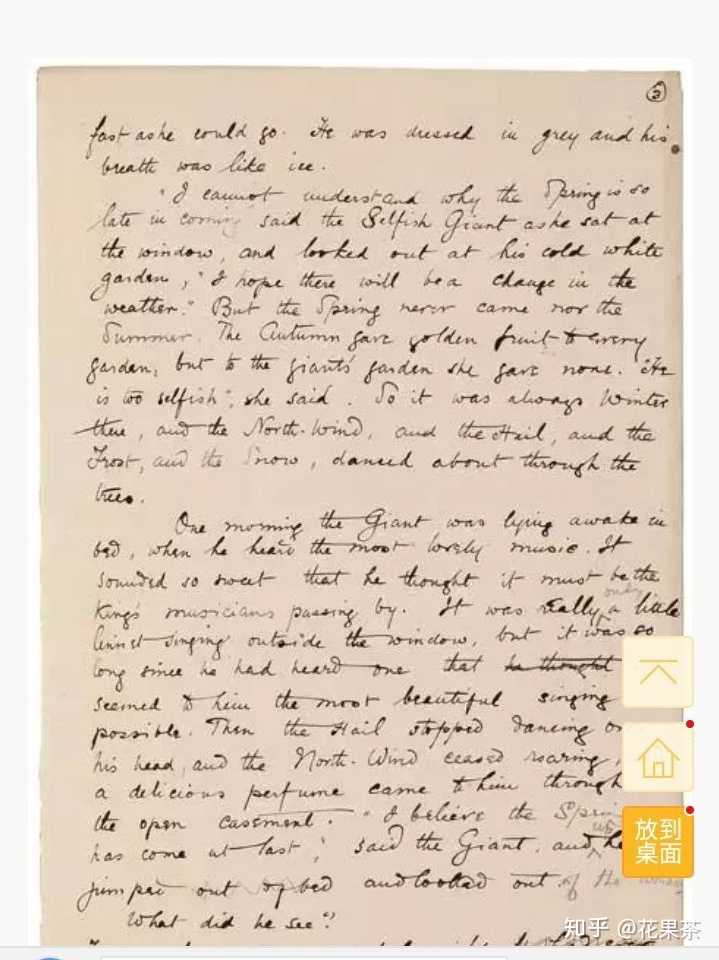 3
fast as he could go. He was dressed in grey and his
breath was like ice.
"I cannot understand why the Spring is so
late in coming said the Selfish Giant as he sat at
the window, and looked out at his cold white
garden, "I hope there will be a change in the
weather." But the Spring never came nor the
Summer. The Autumn gave golden fruit to every
garden, but to the giant's garden she gave none. "He
is too selfish", she said. So it was always Winter
there, and the North-Wind, and the Hail, and the
Frost, and the Snow, danced about through the
trees.
One morning the Giant was lying awake in
bed, when he heard the most lovely music. It
sounded so sweet that he thought it must be the
King's musicians passing by. It was really only a little
linnet singing outside the window, but it was so
long since he had heard one that he thought
seemed to him the most beautiful singing
possible. Then the Hail stopped dancing
his head, and the North-Wind ceased roaring,
a delicious perfume came to him through
the open casement. "I believe the
has come at last," said the Giant, and
jumped out of bed and looked out of the
What did he see?
放到
桌面
知乎 @花果茶